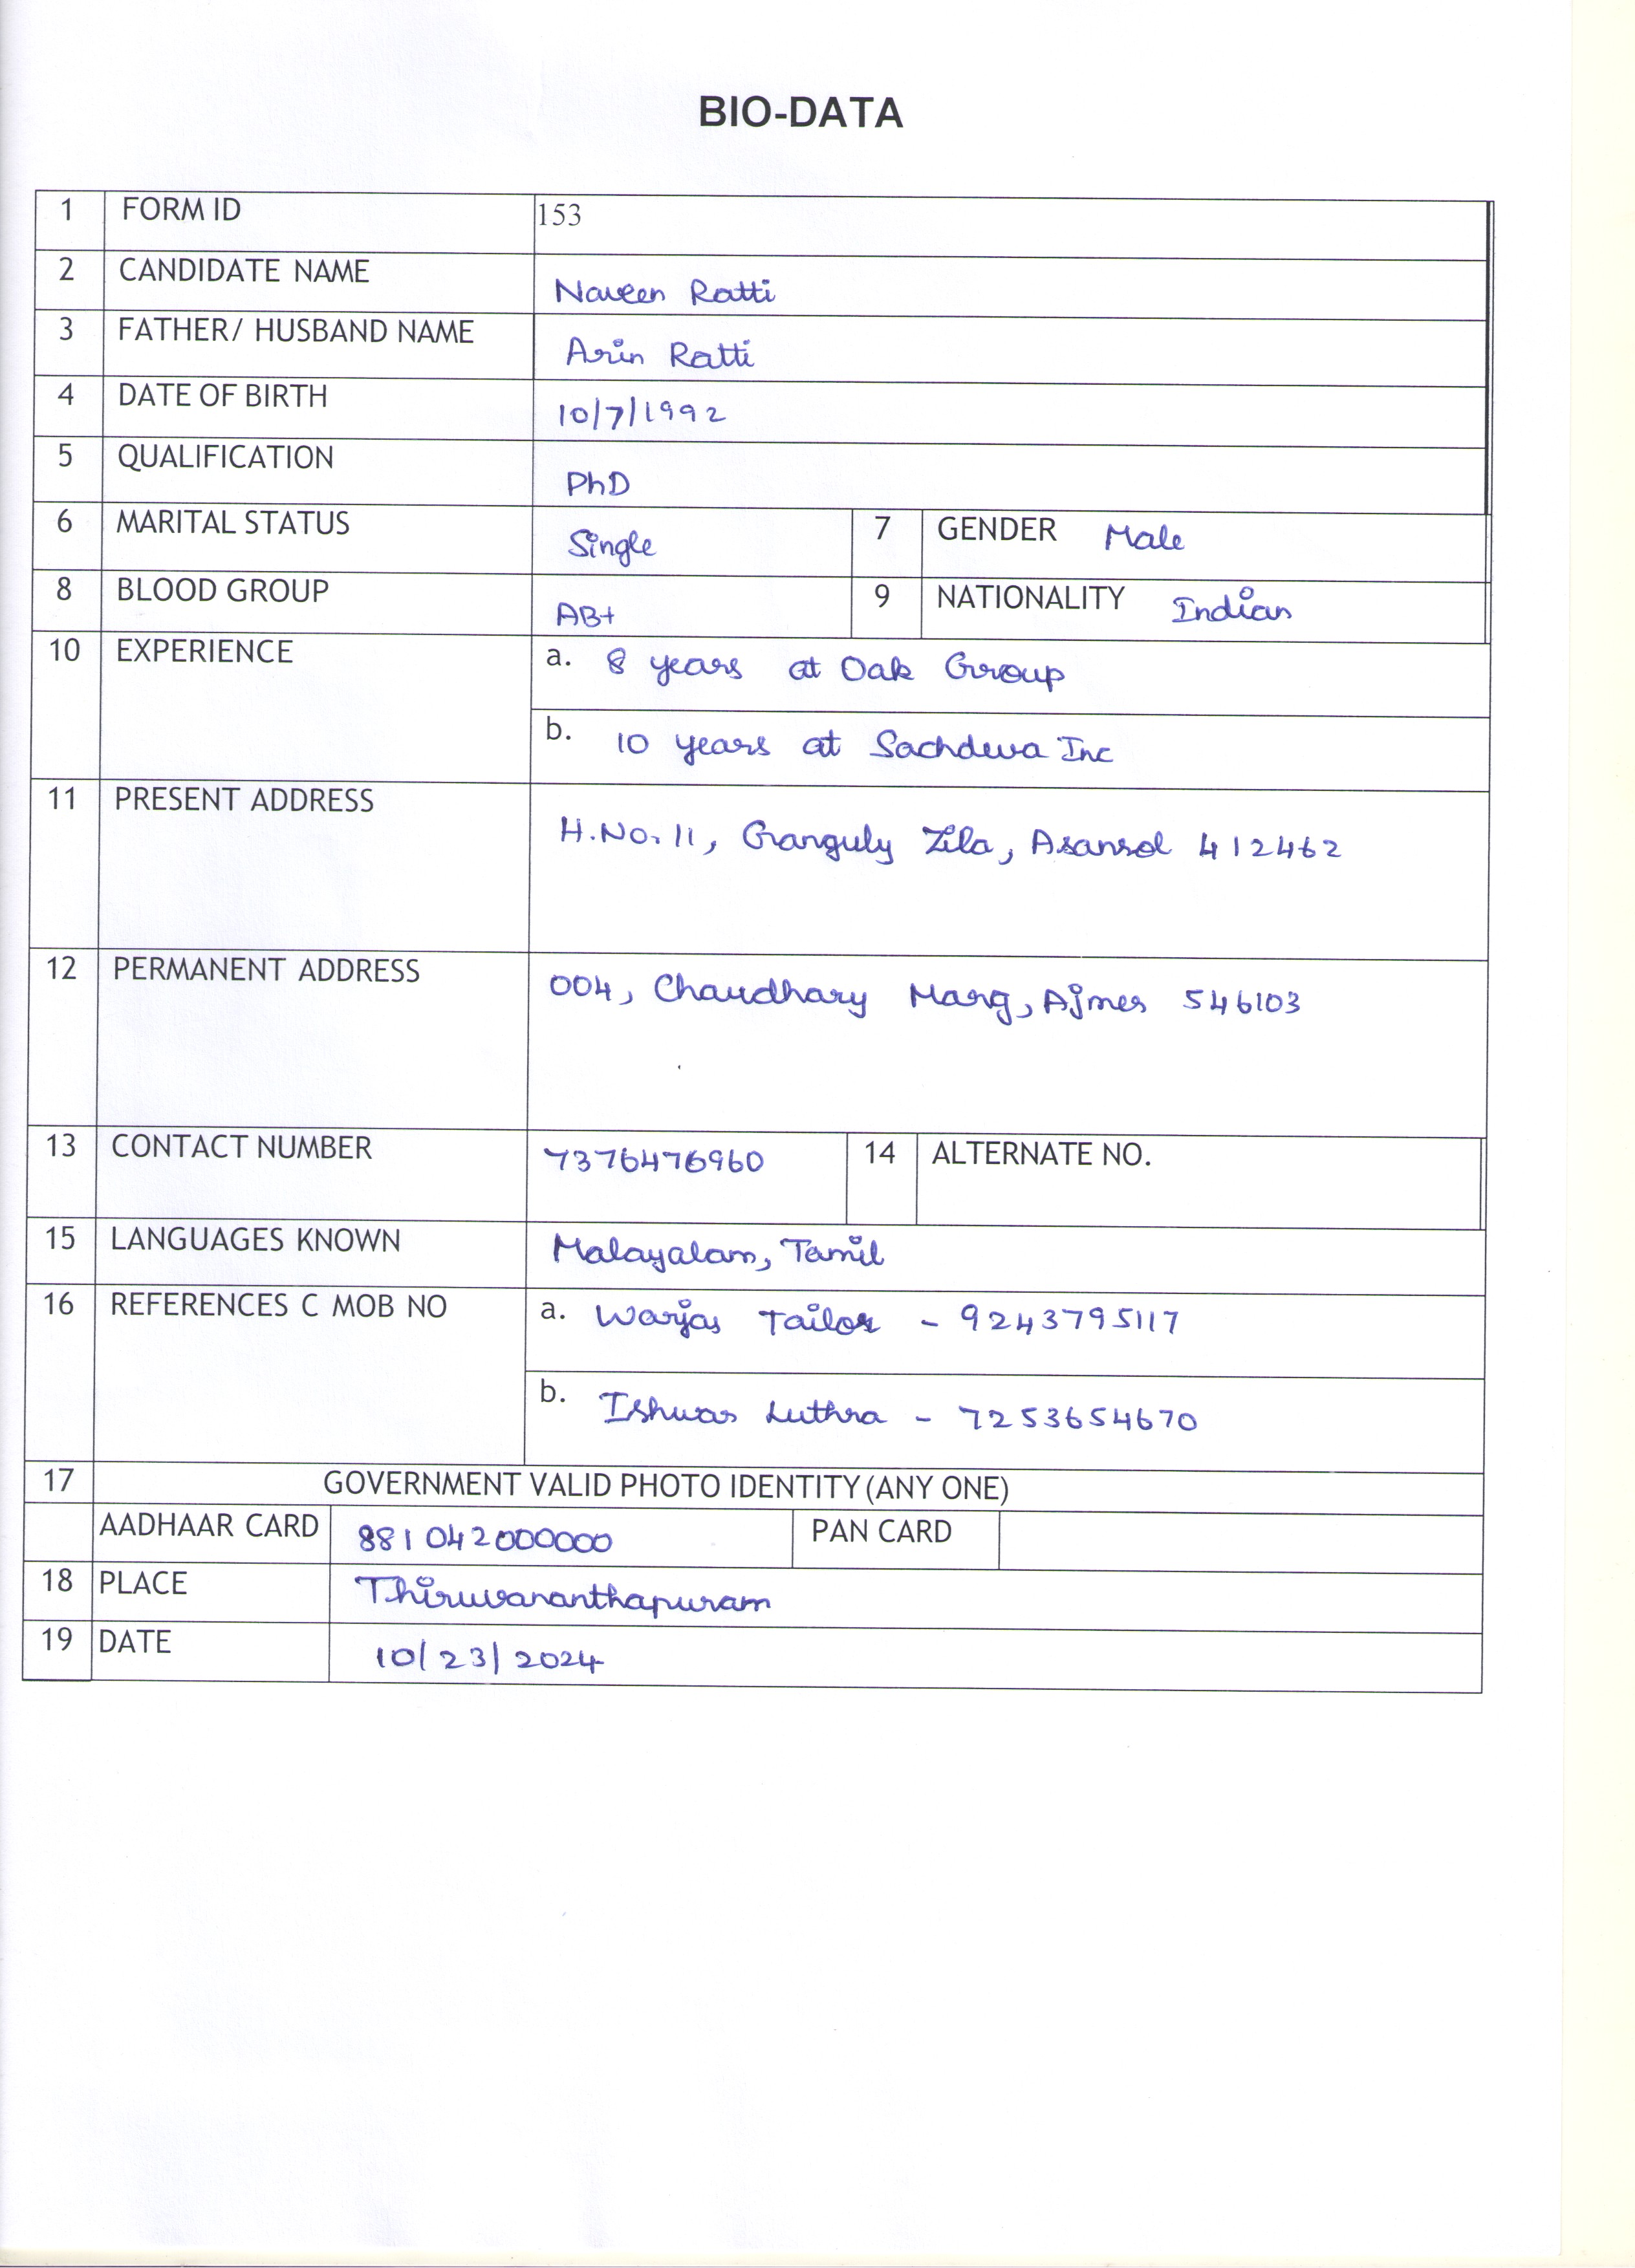 BIO-DATA
1 FORM ID 153
2 CANDIDATE NAME Naveen Ratti
3 FATHER/ HUSBAND NAME Arin Ratti
4 DATE OF BIRTH 10/7/1992
5 QUALIFICATION PhD
6 MARITAL STATUS Single 7 GENDER Male
8 BLOOD GROUP AB+ 9 NATIONALITY Indian
10 EXPERIENCE a. 8 years at Oak Group
b. 10 years at Sachdeva Inc
11 PRESENT ADDRESS H.No. 11, Ganguly Zila, Asansol 412462
12 PERMANENT ADDRESS 004, Chaudhary Marg, Ajmer 546103
13 CONTACT NUMBER 7376476960 14 ALTERNATE NO.
15 LANGUAGES KNOWN Malayalam, Tamil
16 REFERENCES C MOB NO a. Warjas Tailor - 9243795117
b. Ishwar Luthra - 7253654670
17 GOVERNMENT VALID PHOTO IDENTITY (ANY ONE)
AADHAAR CARD 881042000000 PAN CARD
18 PLACE Thiruvananthapuram
19 DATE 10/23/2024